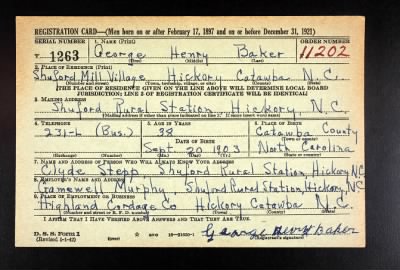 REGISTRATION CARD—(Men born on or after February 17, 1897 and on or before December 31, 1921)
SERIAL NUMBER 1. NAME (Print) ORDER NUMBER
T 1263 George Henry Baker 11202
(First) (Middle) (Last)
2. PLACE OF RESIDENCE (Print)
Shuford Mill Village Hickory Catawba N.C.
(Number and street) (Town, township, village, or city) (County) (State)
[THE PLACE OF RESIDENCE GIVEN ON THE LINE ABOVE WILL DETERMINE LOCAL BOARD
JURISDICTION; LINE 2 OF REGISTRATION CERTIFICATE WILL BE IDENTICAL]
3. MAILING ADDRESS
Shuford Rural Station Hickory, N.C.
[Mailing address if other than place indicated on line 2. If same insert word same]
4. TELEPHONE 5. AGE IN YEARS 6. PLACE OF BIRTH
231-L (Bus.) 38 Catawba County
DATE OF BIRTH (Town or county)
Sept. 20 1903 North Carolina
(Mo.) (Day) (Yr.) (State or country)
7. NAME AND ADDRESS OF PERSON WHO WILL ALWAYS KNOW YOUR ADDRESS
Clyde Stepp Shuford Rural Station, Hickory, N.C.
8. EMPLOYER'S NAME AND ADDRESS
Murphy, Shuford Rural Station, Hickory, N.C.
9. PLACE OF EMPLOYMENT OR BUSINESS
Highland Cordage Co Hickory Catawba N.C.
(Number and street or R. F. D. number) (Town) (County) (State)
I AFFIRM THAT I HAVE VERIFIED ABOVE ANSWERS AND THAT THEY ARE TRUE.
D. S. S. Form 1 George Henry Baker
(Revised 1-1-42) (Registrant's signature)